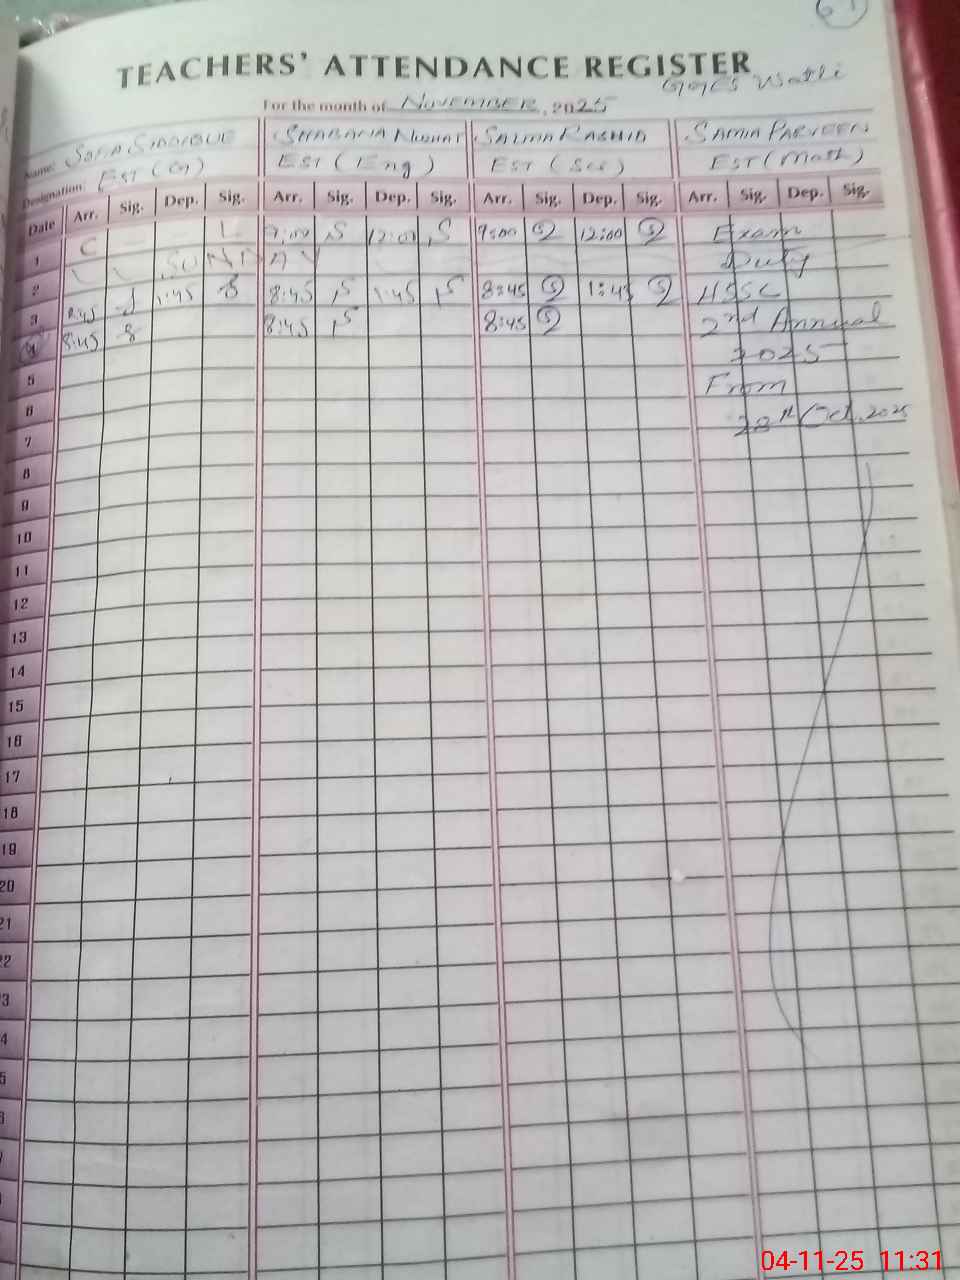 61
TEACHERS' ATTENDANCE REGISTER
GGES Watli
For the month of NOVEMBER, 2025
Name: SOFIA SIDDIQUE SHABANA NUSHAT SALMA RASHID SAMIA PARVEEN
Designation: EST (G) EST (Eng) EST (Sci) EST (Math)
Date Arr. Sig. Dep. Sig. Arr. Sig. Dep. Sig. Arr. Sig. Dep. Sig. Arr. Sig. Dep. Sig.
1 C L 9:00 S 12:00 S 9:00 S 12:00 S Exam
2 SUNDAY Duty
3 8:45 1:45 8:45 S 1:45 S 8:45 S 1:45 S HSSC
4 8:45 8:45 S 8:45 S 2nd Annual
5 2025
6 From
7 28th Oct. 2025
8
9
10
11
12
13
14
15
16
17
18
19
20
21
22
3
4
5
6
04-11-25 11:31